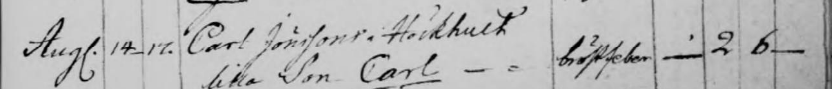 Aug. 14-17. Carl Jönssons i Hökhult bröstfeber — 2 6 —
lilla Son Carl — "